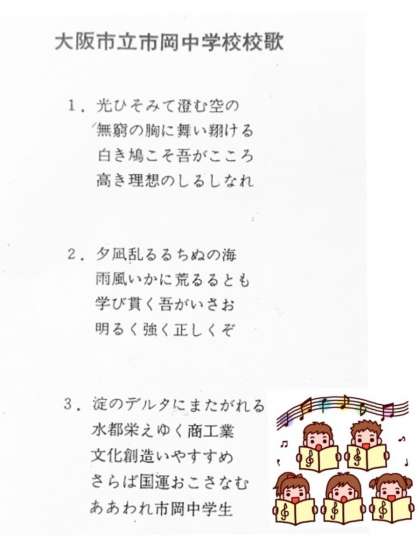 大阪市立市岡中学校校歌
1．光ひそみて澄む空の
無窮の胸に舞い翔ける
白き鳩こそ吾がこころ
高き理想のしるしなれ
2．夕凪乱るるちぬの海
雨風いかに荒るるとも
学び貫く吾がいさお
明るく強く正しくぞ
3．淀のデルタにまたがれる
水都栄えゆく商工業
文化創造いやすすめ
さらば国運おこさなむ
ああわれ市岡中学生